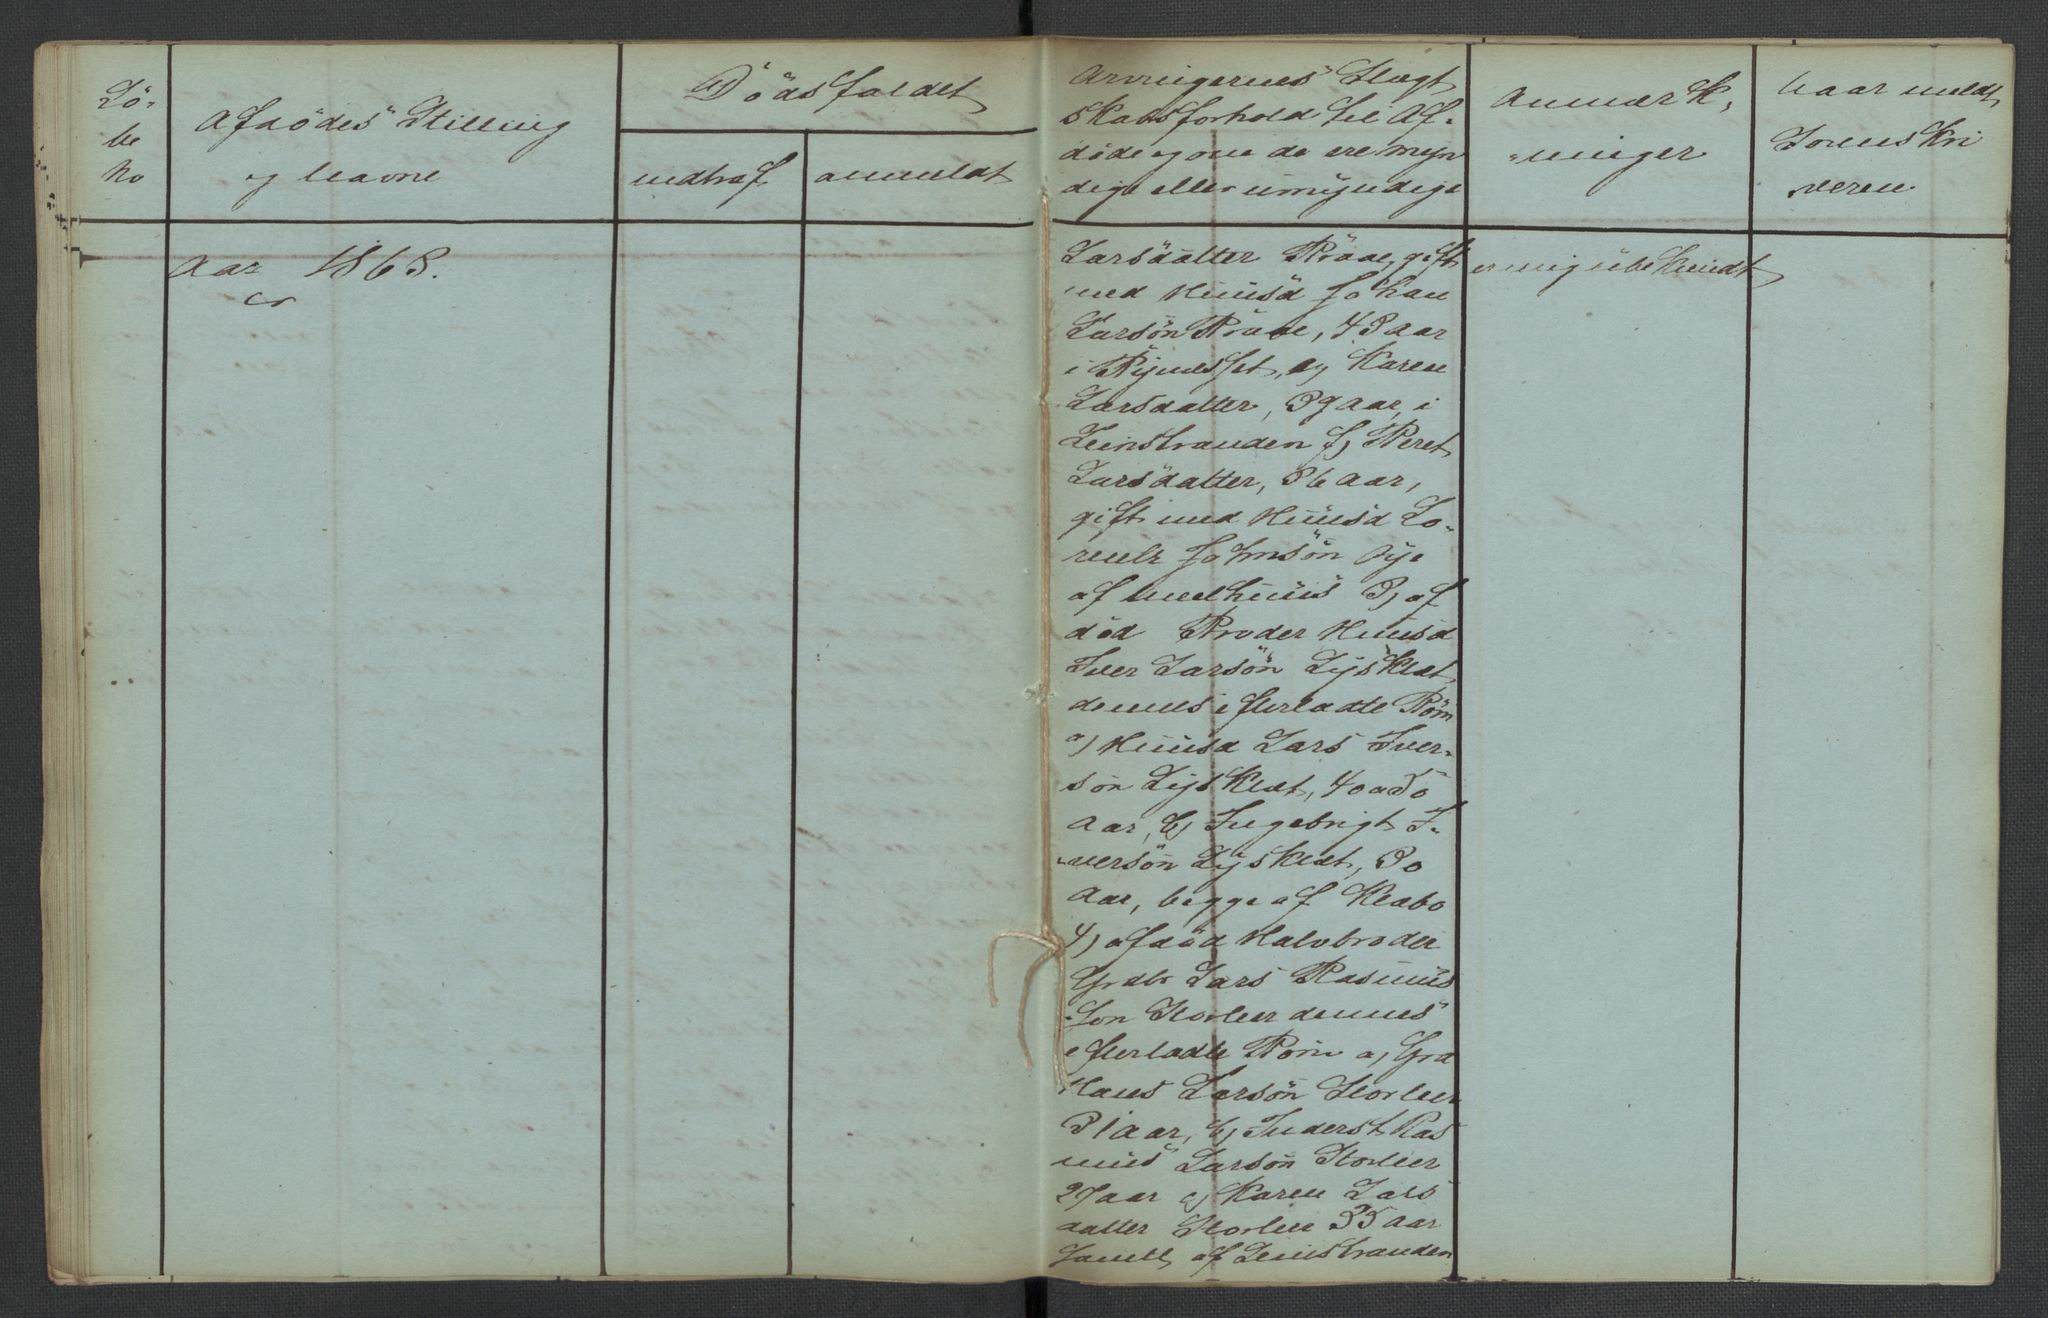 Lö-
be
No
Afdödes Stilling
og Navne
Dödsfaldet
indtraf
anmeldt
Arvingernes Slægt
skabsforhold til Af-
döde og om de ere myn
dige eller umyndige
Anmærk,
-ninger
Naar meldt
Sorenskri
veren
Aar 1868.
Larsdatter Rööe gift
med Huusd Johan
Larsön 43 Aar
i Bynesset, og Karen
Larsdatter, 39 Aar, i
Leinstranden f, Beret
Larsdatter, 36 Aar,
gift med Huusd Lo-
rents Johnsön Øye
af Melhuus 3, af
död Broder Huusd
Iver Larsön Lysklæt,
dennes efterladte Börn
a, Huusd Lars Iver-
sön Lysklæt, 40 a 50
Aar, b, Ingebrigt I-
versön Lysklæt, 30
Aar, begge af Klæbo
4, afdöd Halvbroder
Grdbr Lars Rasmus
son Storler dennes
efterladte Börn a, Grd
Hans Larsön Storler
31 Aar, b, Inderst Ras
mus Larsön Storler
27 Aar c, Karen Lars
datter Storler 35 Aar
Samtl af Leinstranden
er mig ubekiendt